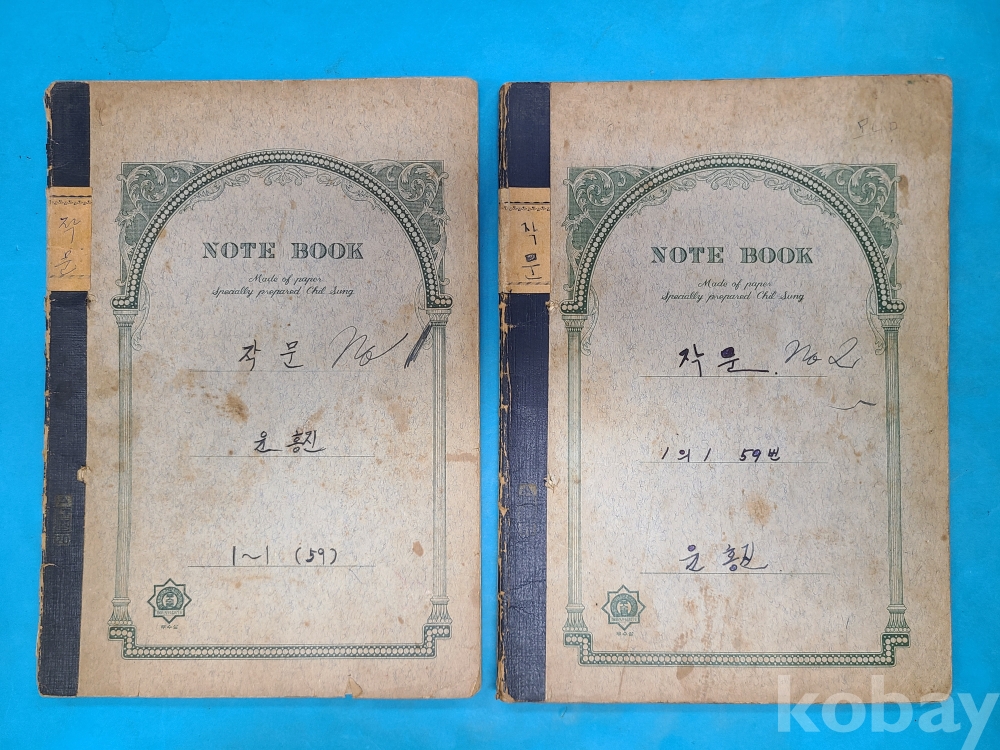 작문
NOTE BOOK
Made of paper
Specially prepared Chil Sung
작문 No 1
윤홍진
1~1 (59)
작문
NOTE BOOK
Made of paper
Specially prepared Chil Sung
작문. No 2
1의 1 59번
윤홍진
kobay